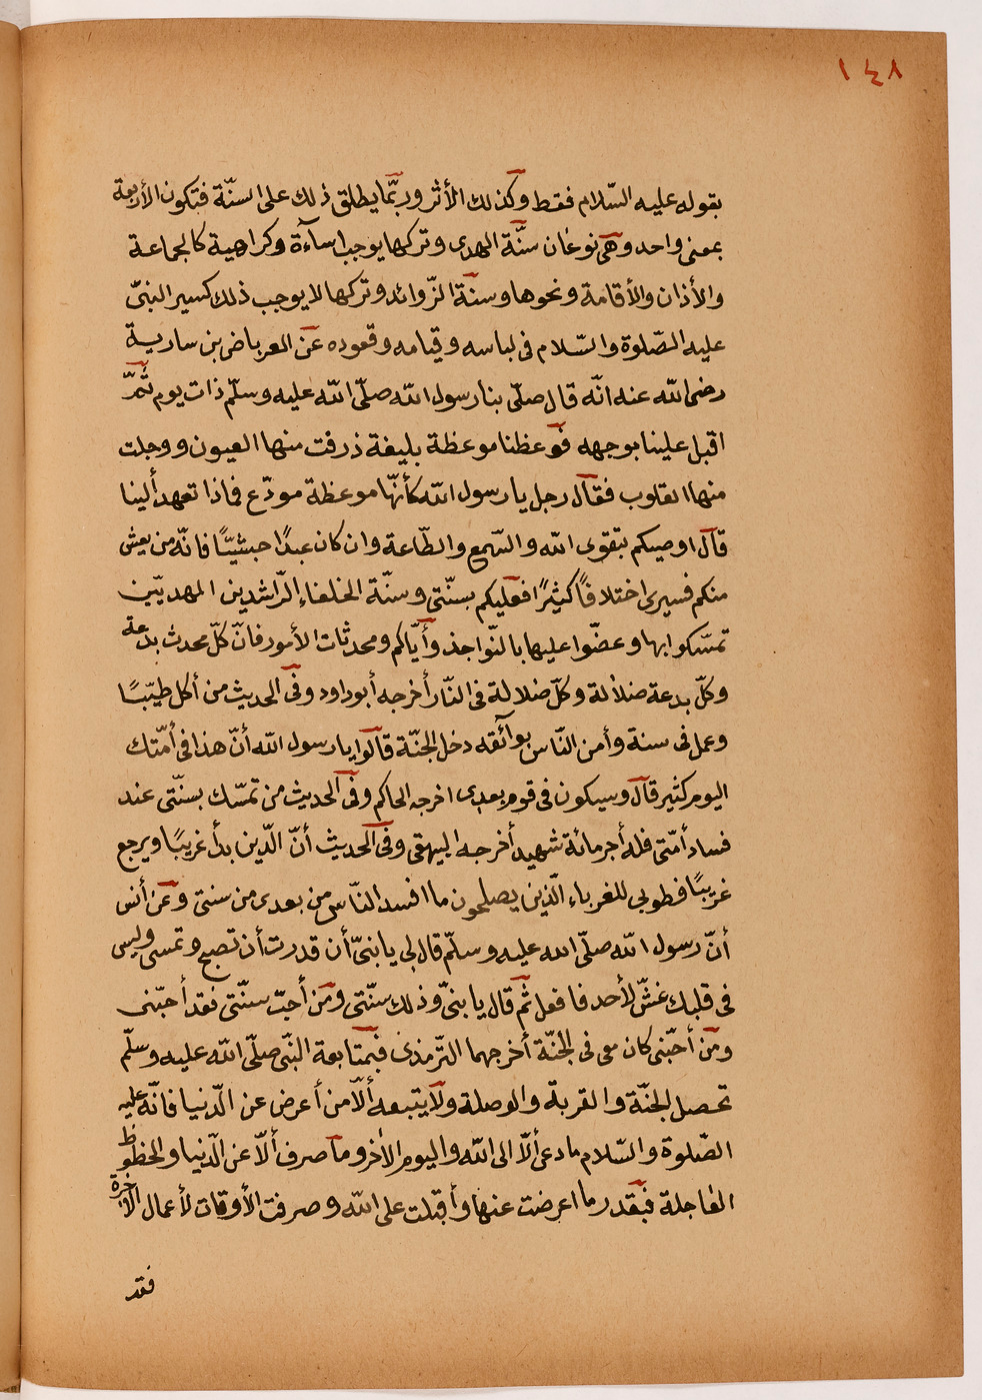 ١٤٨
بقوله عليه السّلام فقط وكذلك الأثر وربّما يطلق ذلك على السنّة فتكون الأربعة
بمعنى واحد وهى نوعان سنّة الهدى وتركها يوجب اسآءة وكراهية كالجماعة
والأذان والأقامة ونحوها وسنة الزّوائد وتركها لا يوجب ذلك كسير النبىّ
عليه الصّلوة والسّلام فى لباسه وقيامه وقعوده عن العرباض بن سارية
رضى الله عنه انّه قال صلّى بنا رسول الله صلّى الله عليه وسلّم ذات يوم ثمّ
اقبل علينا بوجهه فوعظنا موعظة بليغة ذرفت منها العيون ووجلت
منها القلوب فقال رجل يا رسول الله كأنّها موعظة مودّع فماذا تعهد ألينا
قال اوصيكم بتقوى الله والسّمع والطّاعة وان كان عبدًا حبشيّا فانّه من يعش
منكم فسيرى اختلافًا كثيرًا فعليكم بسنّتى وسنّة الخلفاء الرّاشدين المهديّين
تمسّكوا بها وعضّوا عليها بالنّواجذ وأيّاكم ومحدثات الأمور فانّ كلّ محدث بدعة
وكلّ بدعة ضلالة وكلّ ضلالة فى النّار أخرجه أبو داود وفى الحديث من أكل طيّبًا
وعمل فى سنة وأمن النّاس بوآئقه دخل الجنّة قالوا يا رسول الله أنّ هذا فى أمّتك
اليوم كثير قال وسيكون فى قوم بعدى اخرجه الحاكم وفى الحديث من تمسّك بسنّتى عند
فساد أمّتى فله أجر مائة شهيد أخرجه البيهقى وفى الحديث أنّ الدّين بدأ غريبًا ويرجع
غريبًا فطوبى للغرباء الّذين يصلحون ما افسد النّاس من بعدى من سنتى وعن أنس
أنّ رسول الله صلّى الله عليه وسلّم قال لى يا بنىّ أن قدرت أن تصبح وتمسى وليس
فى قلبك غشّ لأحد فافعل ثم قال يا بنىّ وذلك سنّتى ومن أحبّ سنّتى فقد أحبّنى
ومن أحبّنى كان معى فى الجنّة أخرجهما التّرمذى فبمتابعة النّبى صلّى الله عليه وسلّم
تحصل الجنّة والقربة والوصلة ولا يتبعه ألّا من أعرض عن الدّنيا فانّه عليه
الصّلوة والسّلام ما دعى ألّا الى الله واليوم الأخر وما صرف ألّا عن الدّنيا والحظوظ
العاجلة فبقدر ما اعرضت عنها وأقبلت على الله وصرفت الأوقات لأعمال الآخرة
فقد